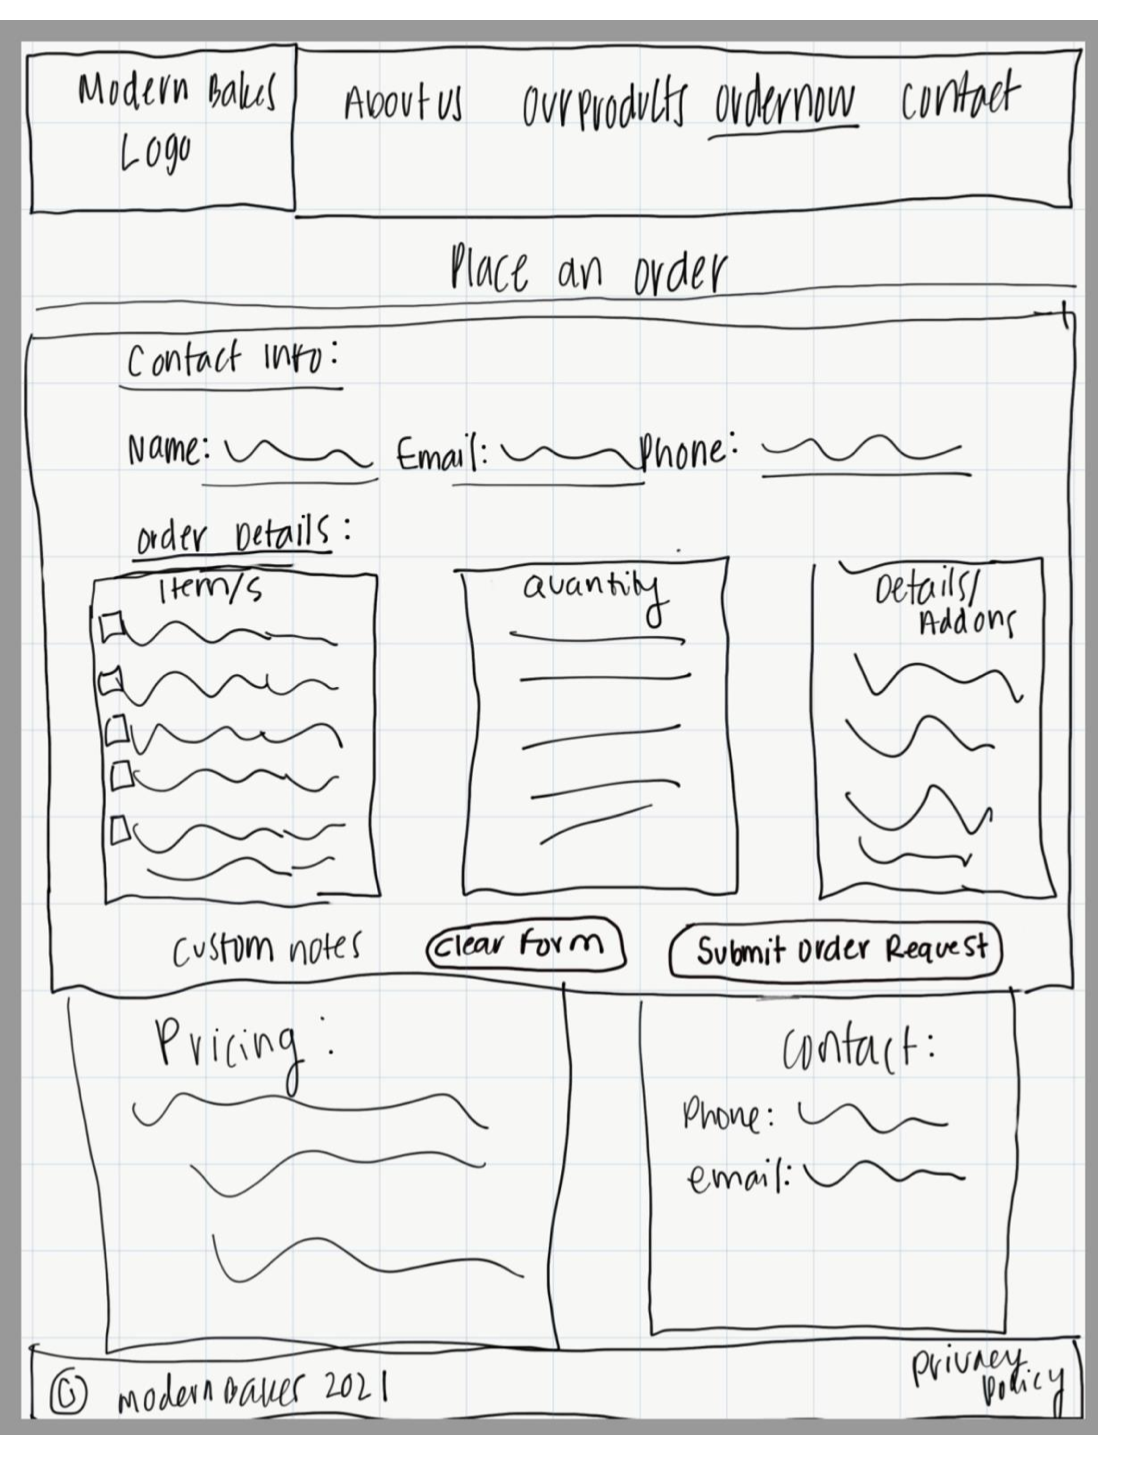 Modern Bakes
Logo
About us our products order now contact
Place an order
Contact Info:
Name: Email: Phone:
order Details:
Item/s
quantity
Details/
Addons
Custom notes Clear Form Submit Order Request
Pricing:
contact:
Phone:
email:
© modern Baker 2021
privacy
policy